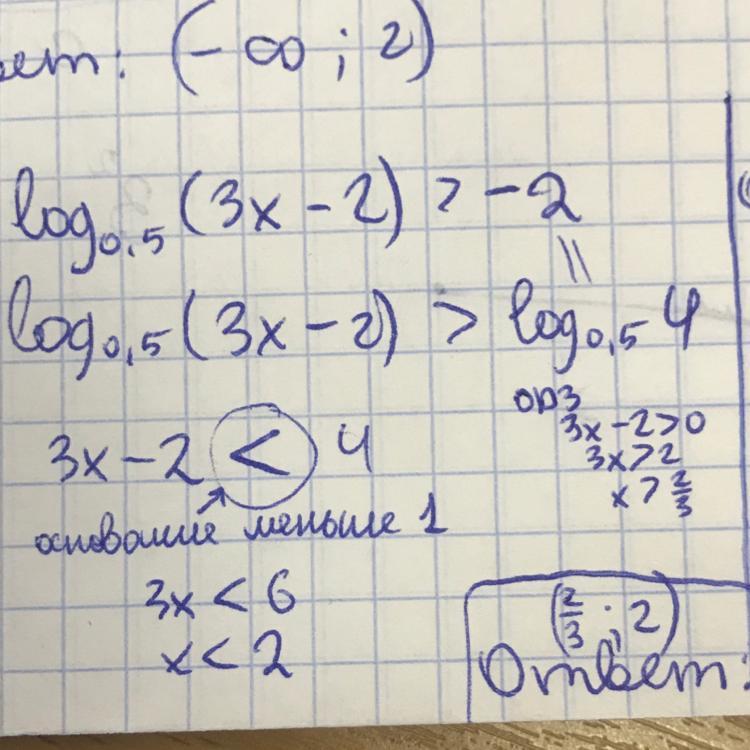 ет: (-∞; 2)
log₀,₅(3x-2) > -2
||
log₀,₅(3x-2) > log₀,₅ 4
ОДЗ
3x-2>0
3x>2
x>2/3
3x-2 < 4
основание меньше 1
3x < 6
x < 2
(2/3; 2)
Ответ: